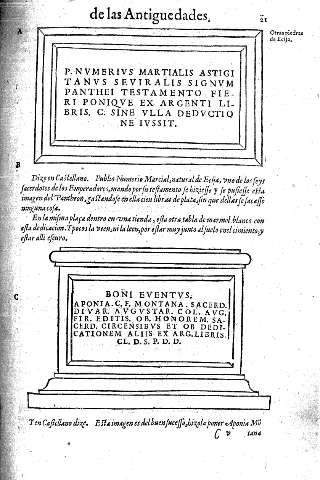 de las Antiguedades.
21
A
Otras piedras
de Ecija.
P. NVMERIVS MARTIALIS ASTIGI
TANVS SEVIRALIS SIGNVM
PANTHEI TESTAMENTO FIE-
RI PONIQVE EX ARGENTI LI-
BRIS. C. SINE VLLA DEDVCTIO
NE IVSSIT.
B
Dize en Castellano. Publio Numerio Marcial, natural de Ecija, vno de los seys
sacerdotes de los Emperadores, mando por su testamento se hiziesse y se pusiesse esta
imagen del Pantheon, gastandose en ella cien libras de plata, sin que dellas se sacasse
ninguna cosa.
En la misma plaça dentro en vna tienda, està otra tabla de marmol blanco con
esta dedicacion. Y pocos la veen, ni la leen, por estar muy junto al suelo en el cimiento, y
estar alli escuro.
C
BONI EVENTVS.
APONIA. C. F. MONTANA. SACERD.
DIVAR. AVGVSTAR. COL. AVG.
FIR. EDITIS. OB. HONOREM. SA-
CERD. CIRCENSIBVS ET OB DEDI-
CATIONEM ALIIS EX ARG. LIBRIS.
CL. D. S. P. D. D.
Y en Castellano dize. Esta imagen es del buen sucesso, hizola poner Aponia Mõ
C v
tana